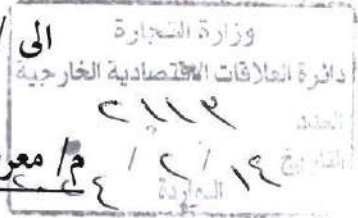 الى /
وزارة التجارة
دائرة العلاقات الاقتصادية الخارجية
العدد ٢١١١٣
التاريخ ١٤ / ٢ / ٢٠٢٤
م/ معر
الواردة